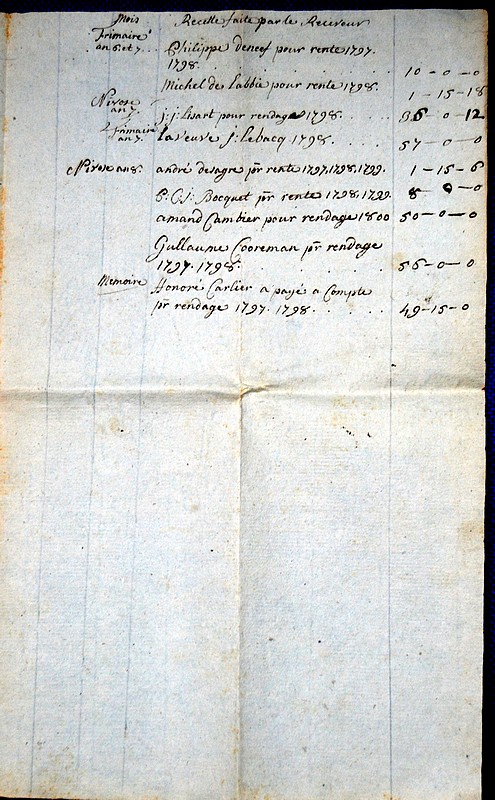 Mois Recette faite par le Receveur
Frimaire
an 6. et 7. . . Philippe deneef pour rente 1797.
1798. . . . . . . . 10 - 0 - 0
Michel de Labbie pour rente 1798. 1 - 15 - 18
Nivose
an 7. j: j: Lisart pour rendage 1798. . . . 36 - 0 - 12
Frimaire
an 7. La veuve j: Lebacq 1798. . . . . 57 - 0 - 0
Nivose an 8. andré desagre pr rente 1797, 1798, 1799. 1 - 15 - 6
P. C. j: Bocquet pr rente 1798, 1799. 8 - 0 - 0
amand Cambier pour rendage 1800 50 - 0 - 0
Gullaume Cooreman pr rendage
1797. 1798. . . . . . 56 - 0 - 0
Memoire Honoré Carlier a payé a Compte
pr rendage 1797. 1798. . . . . . 49 - 15 - 0